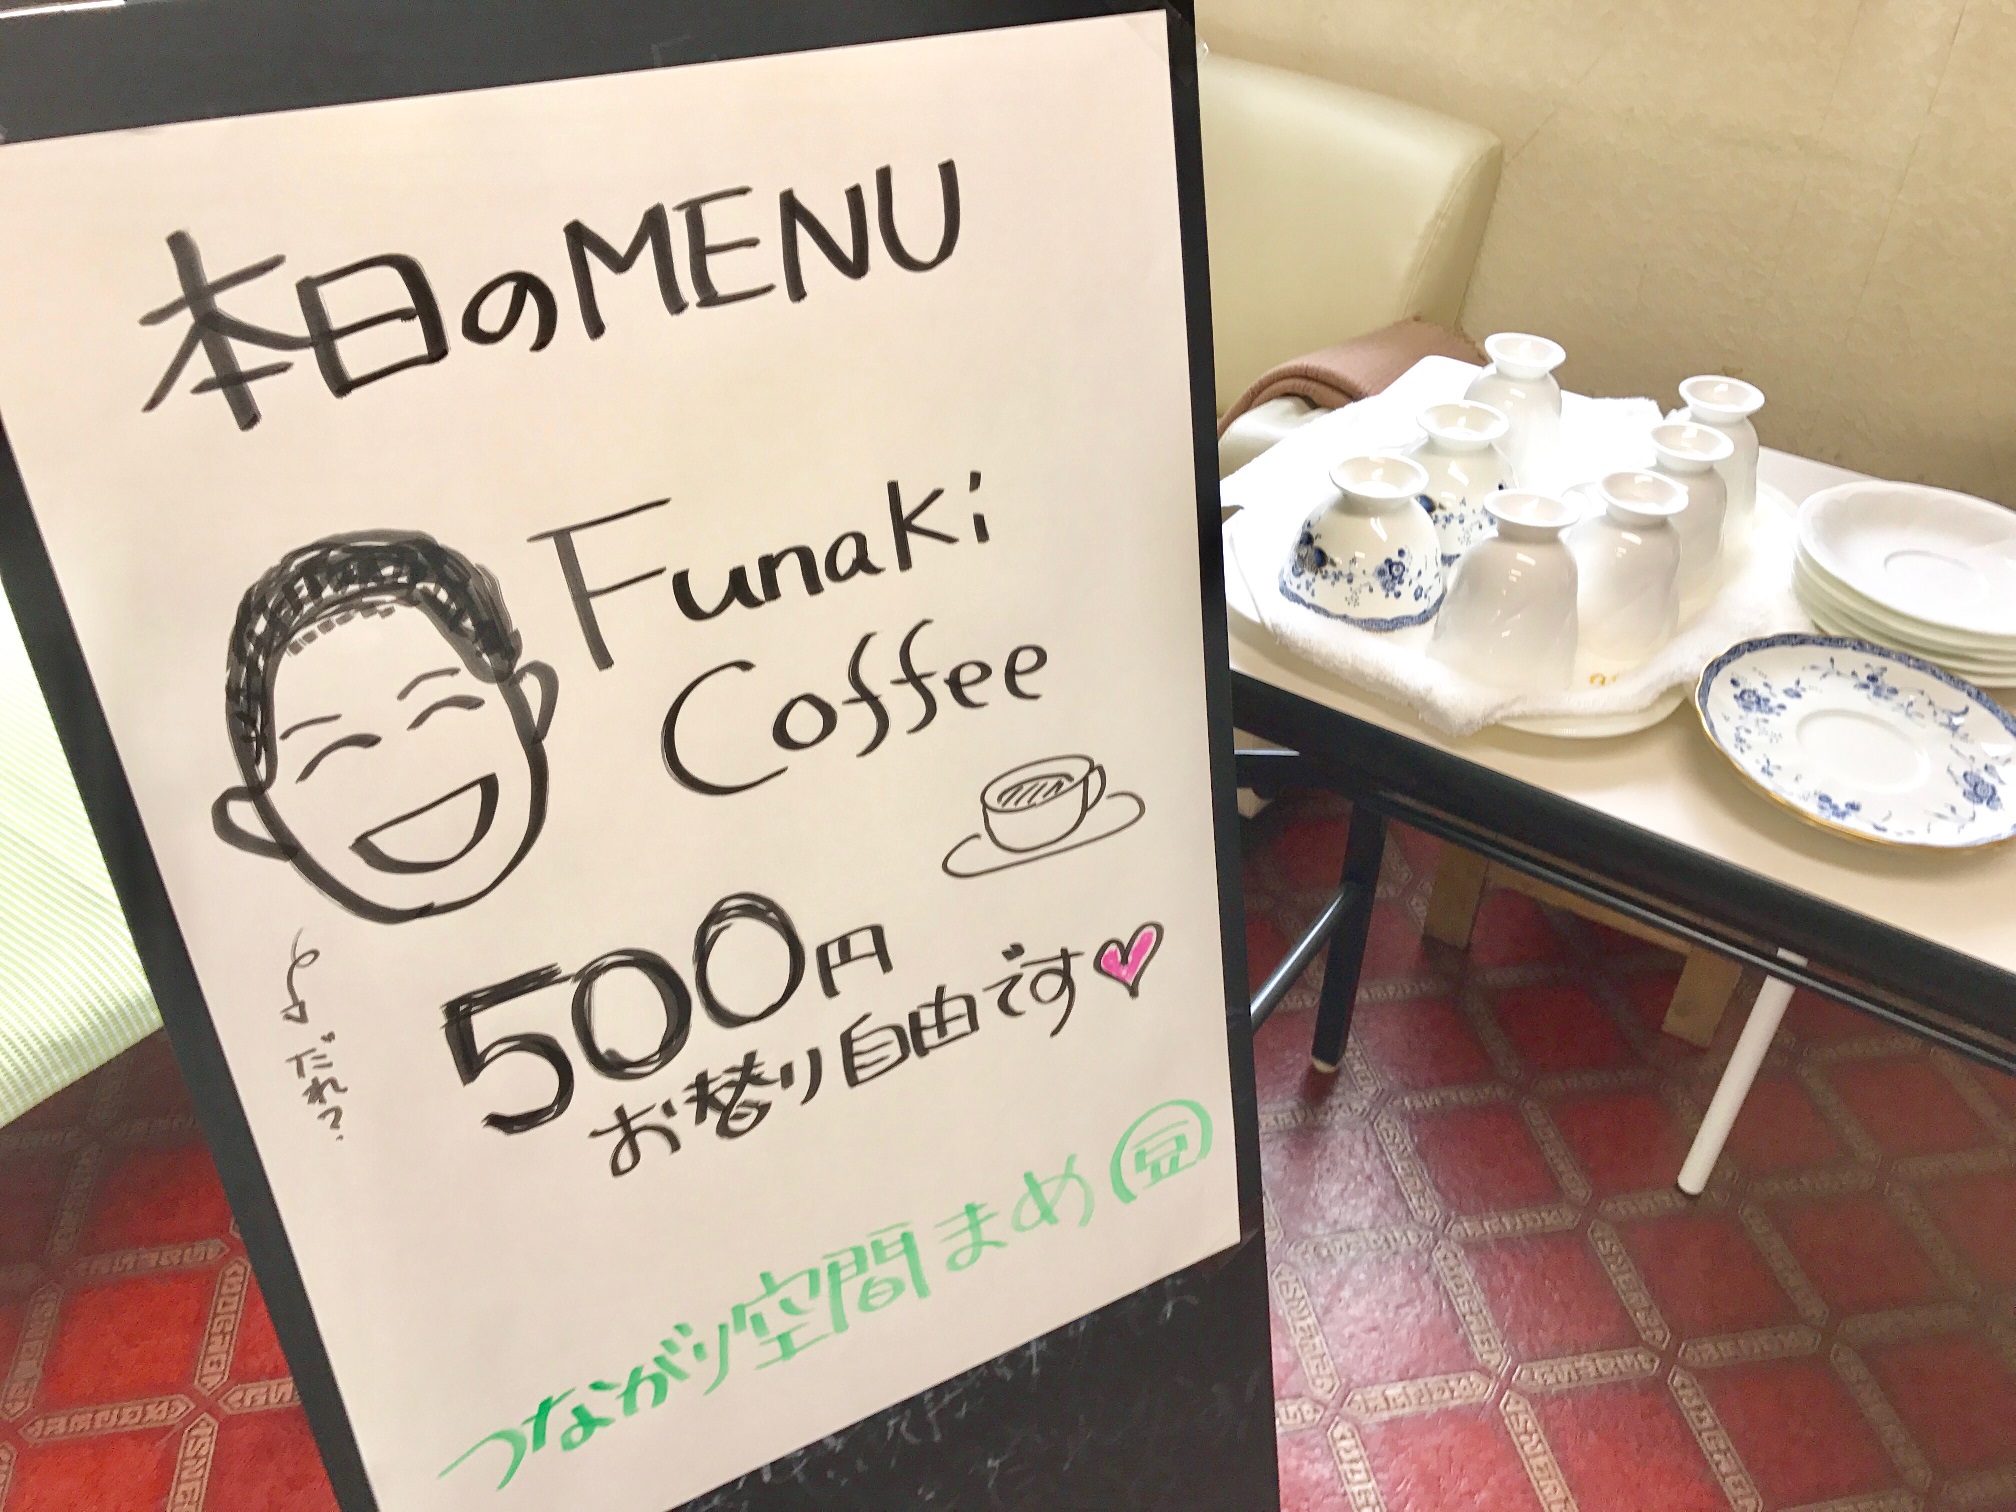 本日のMENU
Funaki
Coffee
500円
お替り自由です
だれ?
つながり空間まめ豆